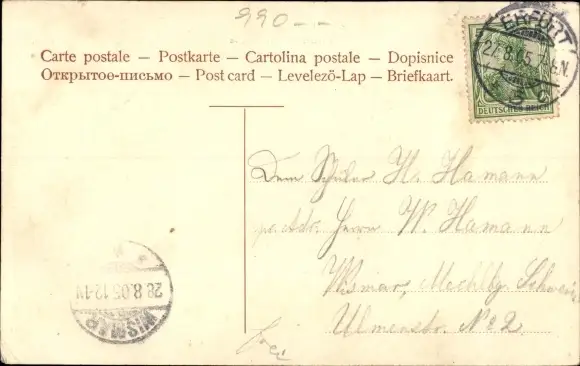 990.--
Carte postale — Postkarte — Cartolina postale — Dopisnice
Открытое-письмо — Post card — Levelező-Lap — Briefkaart.
ERFURT
27.8.05.7-8N.
DEUTSCHES REICH
Dem Schüler H. Hamann
pr. Adr. Herrn W. Hamann
Wismar, Mecklbg. Schwerin
Ulmenstr. No 2.
WISMAR
28.8.05.12-1N